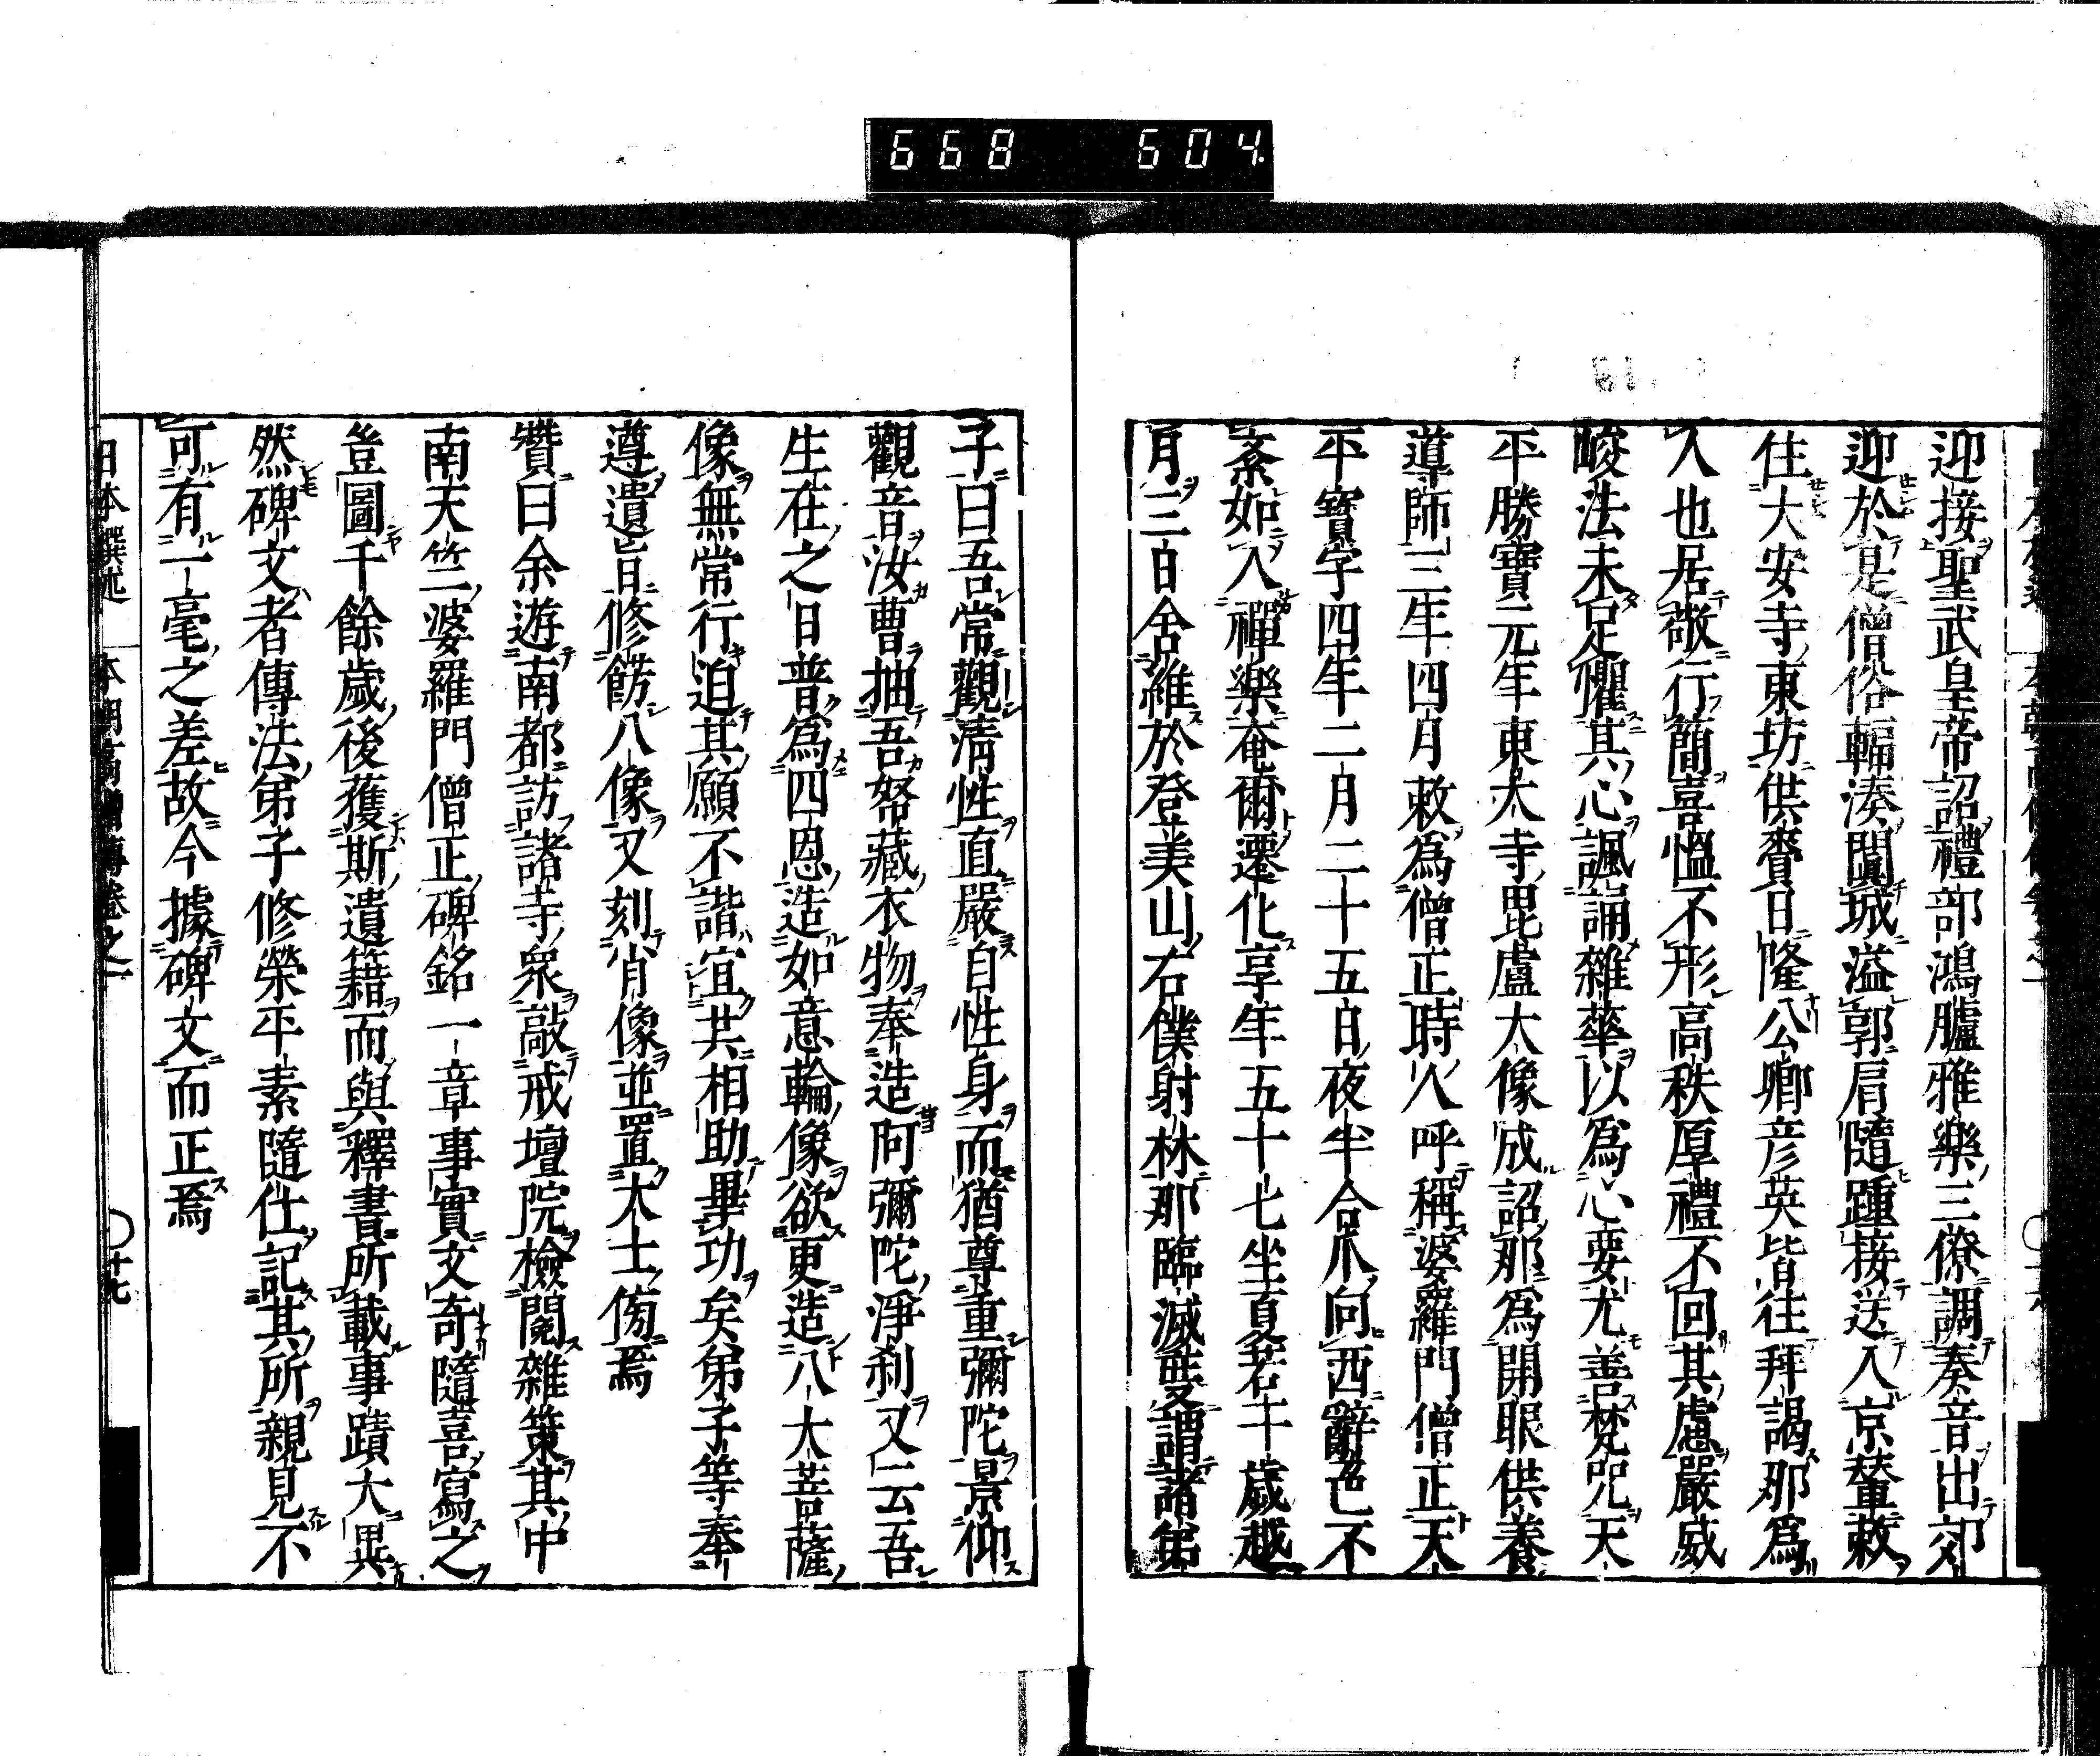 668 604
迎接聖武皇帝詔禮部鴻臚雅樂三僚調奏音出郊
迎於是僧俗輻湊闐城溢郭肩隨踵接送入京輦敕
住大安寺東坊供賚日隆公卿彦英皆往拜謁那為
人也居敬行簡喜慍不形高秩厚禮不回其慮嚴威
峻法未足懼其心諷誦雜華以為心要尤善梵咒天
平勝寶元年東大寺毘盧大像成詔那為開眼供養
導師三年四月敕為僧正時人呼稱婆羅門僧正天
平寶字四年二月二十五日夜半合爪向西辭色不
紊如入禪樂奄爾遷化享年五十七坐夏若干歲越
月三日舍維於登美山右僕射林那臨滅度謂諸弟
子曰吾常觀清性直嚴自性身而猶尊重彌陀景仰
觀音汝曹抽吾帑藏衣物奉造阿彌陀淨刹又云吾
生在之日普為四恩造如意輪像欲更造八大菩薩
像無常行迫其願不諧宜共相助畢功矣弟子等奉
遵遺旨修餝八像又刻肖像並置大士傍焉
贊曰余遊南都訪諸寺眾敲戒壇院檢閱雜策其中
南天竺婆羅門僧正碑銘一章事實文奇隨喜寫之
豈圖千餘歲後獲斯遺籍而與釋書所載事蹟大異
然碑文者傳法弟子修榮平素隨仕記其所親見不
可有一毫之差故今據碑文而正焉
日本撰述 本朝高僧傳卷之一 十七